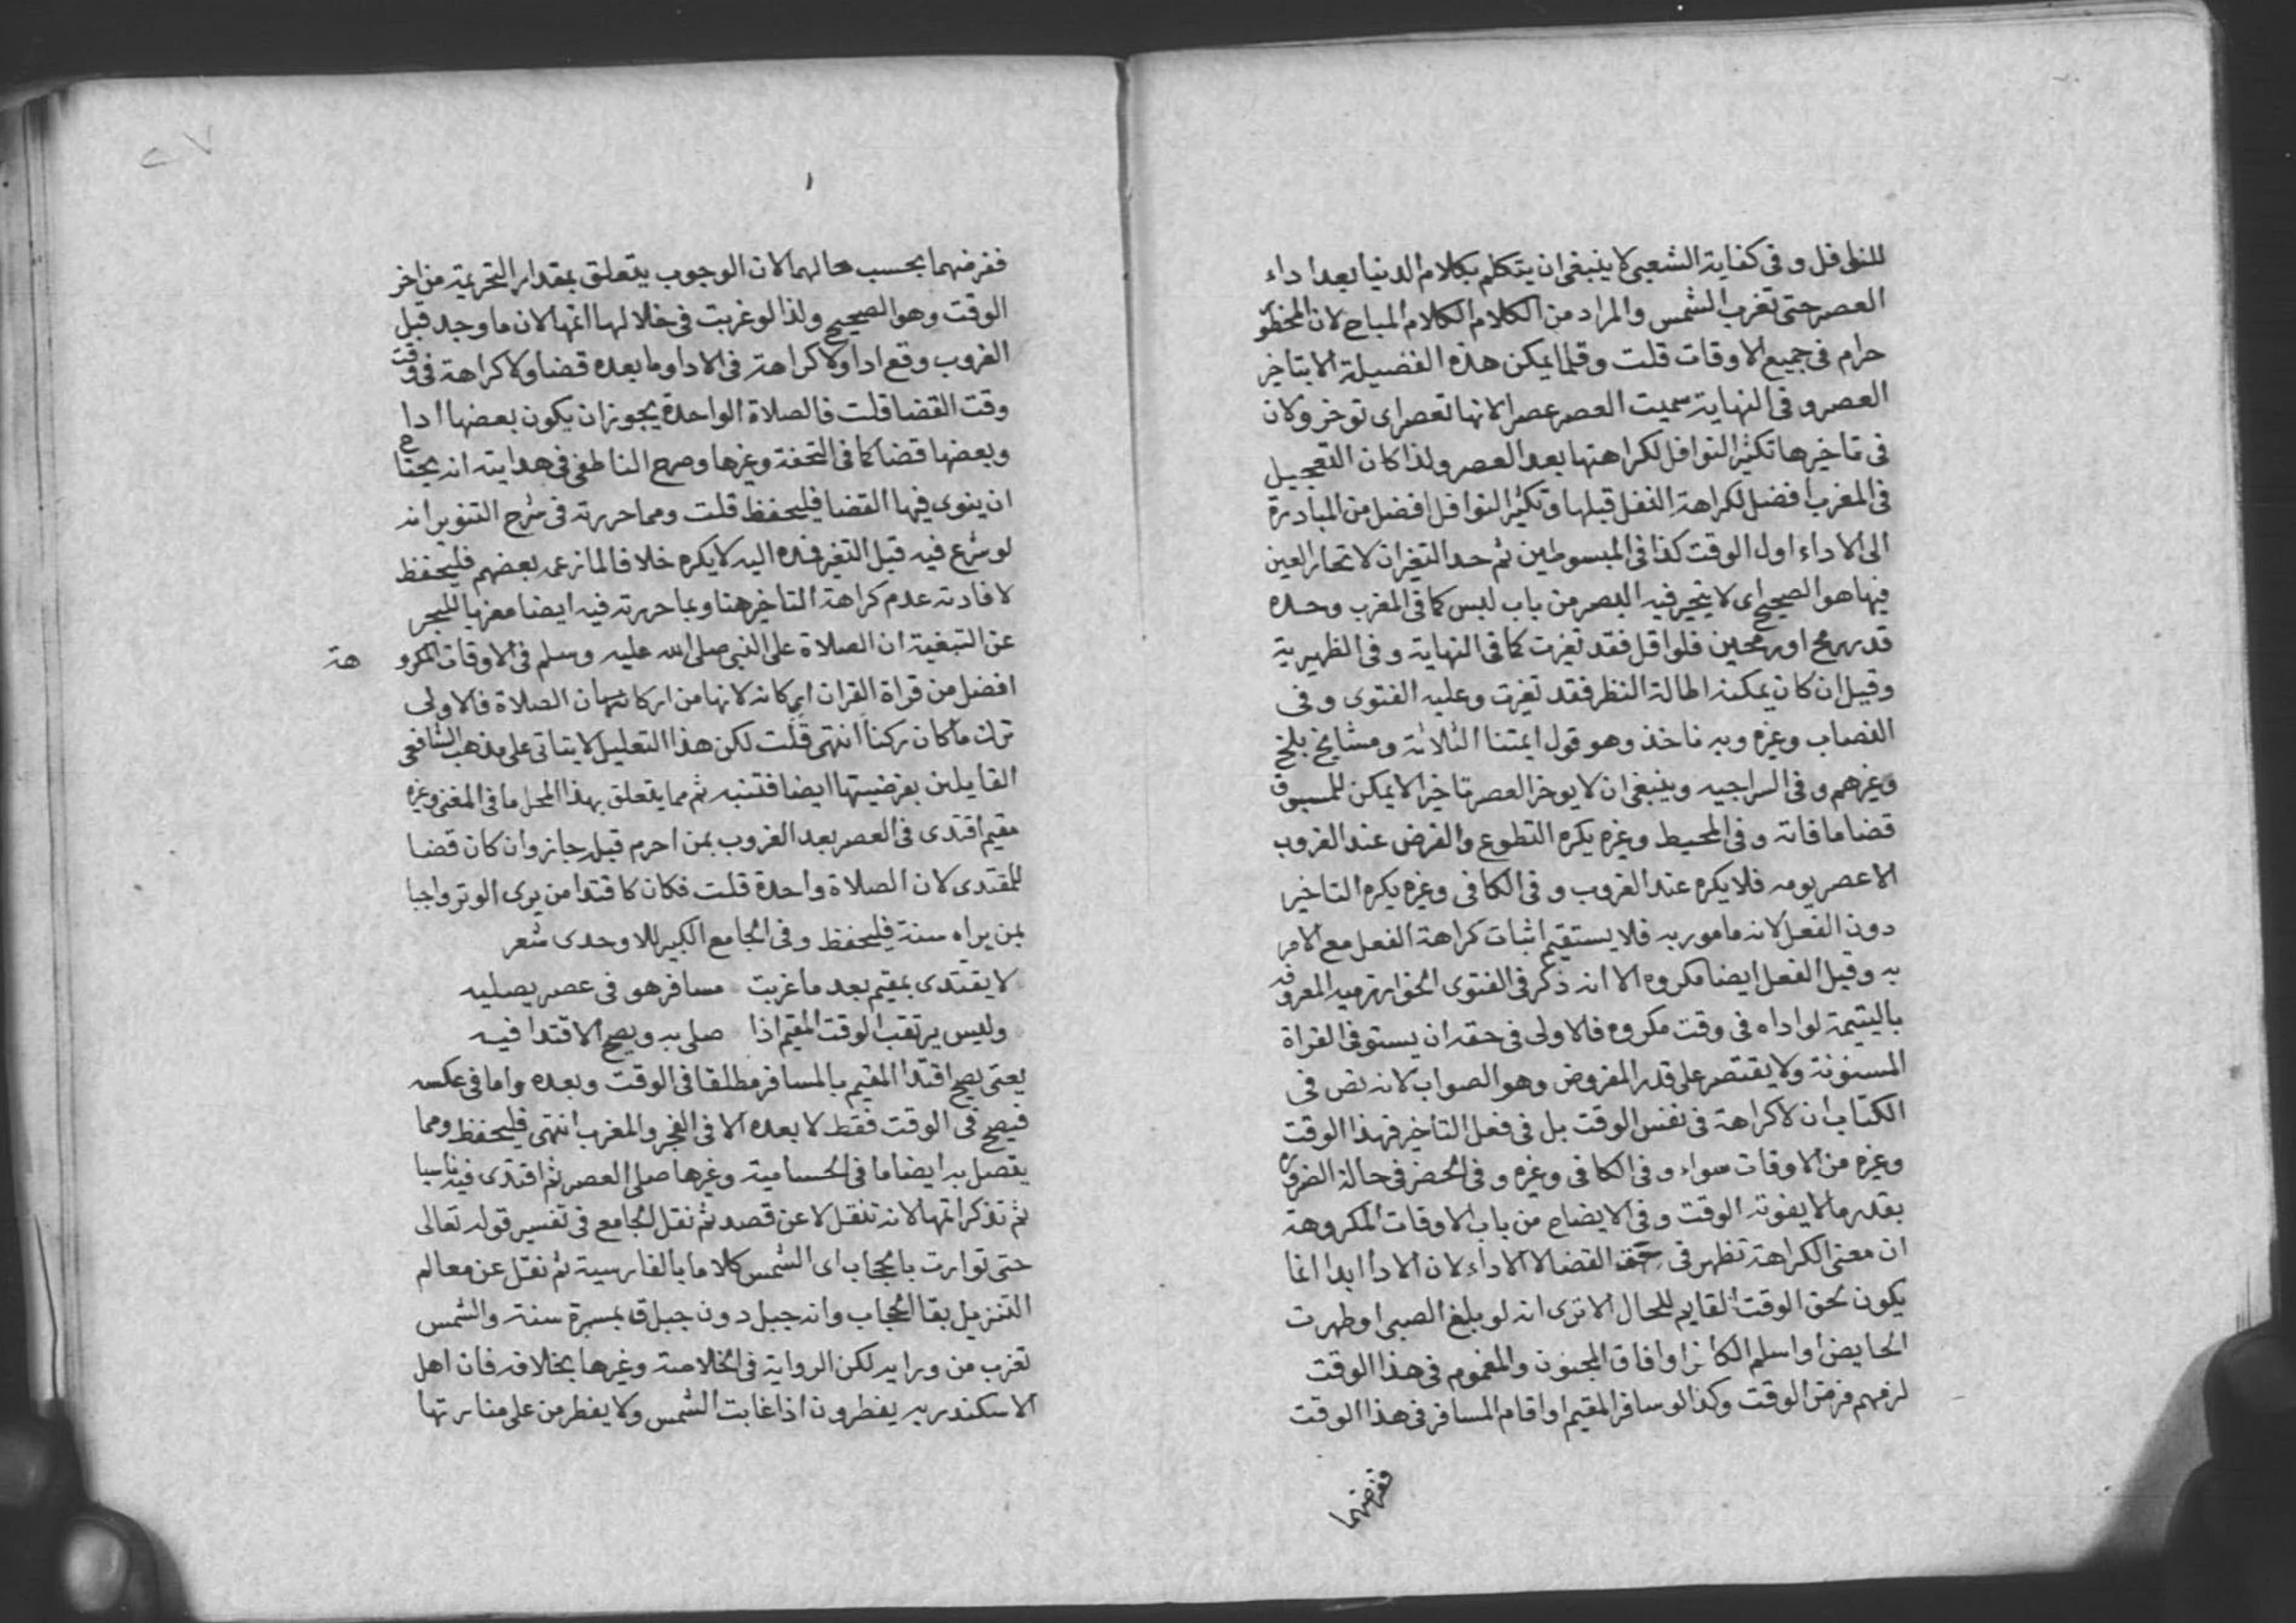 للنوافل وفى كفاية الشعبى لا ينبغى ان يتكلم بكلام الدنيا بعد اداء
العصر حتى تغرب الشمس والمراد من الكلام الكلام المباح لان المحظور
حرام فى جميع الاوقات قلت وقلما يمكن هذه الفضيلة الا بتاخير
العصر وفى النهاية سميت العصر عصر الانها تعصر اى توخر ولان
فى تاخيرها تكثير النوافل لكراهتها بعد العصر ولذا كان التعجيل
فى المغرب افضل لكراهة النفل قبلها وتكثير النوافل افضل من المبادرة
الى الاداء اول الوقت كذا فى المبسوطين ثم حد التغير ان لا تحار العين
فيها هو الصحيح اى لا يتحير فيه البصر من باب لبس كما فى المغرب وحده
قدر رمح او رمحين فلو اقل فقد تغيرت كما فى النهاية وفى الظهيرية
وقيل ان كان يمكنه اطالة النظر فقد تغيرت وعليه الفتوى وفى
النصاب وغيره وبه ناخذ وهو قول ايمتنا الثلاثة ومشايخ بلخ
وغيرهم وفى السراجيه وينبغى ان لا يوخر العصر تاخيرا لا يمكن للمسبوق
قضا ما فاته وفى المحيط وغيره يكره التطوع والفرض عند الغروب
الا عصر يومه فلا يكره عند الغروب وفى الكافى وغيره يكره التاخير
دون الفعل لانه مامور به فلا يستقيم اثبات كراهة الفعل مع الامر
به وقيل الفعل ايضا مكروه الا انه ذكر فى الفتوى الخوارزميه المعروفه
باليتيمة لو اداه فى وقت مكروه فالاولى فى حقه ان يستوفى القراة
المسنونة ولا يقتصر على قدر المفروض وهو الصواب لانه نص فى
الكتاب ان لا كراهة فى نفس الوقت بل فى فعل التاخير فهذا الوقت
وغيره من الاوقات سواء وفى الكافى وغيره وفى الحضر فى حالة الضرورة
بقدر ما لا يفوته الوقت وفى الايضاح من باب الاوقات المكروهة
ان معنى الكراهة تظهر فى حق القضا لا الاداء لان الادا ابدا انما
يكون بحق الوقت القايم للحال الا ترى انه لو بلغ الصبى او طهرت
الحايض او اسلم الكافر او افاق المجنون والمغموم فى هذا الوقت
لزمهم فرض الوقت وكذا لو سافر المقيم او اقام المسافر فى هذا الوقت
ففرضهما
ففرضهما بحسب حالهما لان الوجوب يتعلق بمقدار التحريمة من اخر
الوقت وهو الصحيح ولذا لو غربت فى خلالها اتمها لان ما وجد قبل
الغروب وقع ادا ولا كراهة فى الادا وما بعده قضا ولا كراهة فى وقت
وقت القضا قلت فالصلاة الواحدة يجوز ان يكون بعضها ادا
وبعضها قضا كما فى التحفة وغيرها وصرح الناطفى فى هدايته انه يحتاج
ان ينوى فيها القضا فليحفظ قلت ومما حررته فى شرح التنوير انه
لو شرع فيه قبل التغير فمده اليه لا يكره خلافا لما زعمه بعضهم فليحفظ
لافادته عدم كراهة التاخير هنا وبما حررته فيه ايضا معزيا للبحر
عن البغية ان الصلاة على النبى صلى الله عليه وسلم فى الاوقات المكروهة
افضل من قراة القران لانها من اركان الصلاة فالاولى
ترك ما كان ركنا انتهى قلت لكن هذا التعليل لا يتاتى على مذهب الشافعى
القايلين بفرضيتها ايضا فتنبه ثم مما يتعلق بهذا المحل ما فى المغنى وغيره
مقيم اقتدى فى العصر بعد الغروب بمن احرم قبله جاز وان كان قضا
للمقتدى لان الصلاة واحدة قلت فكان كاقتدا من يرى الوتر واجبا
بمن يراه سنة فليحفظ وفى الجامع الكبير للاوحدى شعر
لا يقتدى بمقيم بعد ما غربت مسافر هو فى عصر يصليه
وليس يرتقب الوقت المقيم اذا صلى به ويصح الاقتدا فيه
يعنى يصح اقتدا المقيم بالمسافر مطلقا فى الوقت وبعده واما فى عكسه
فيصح فى الوقت فقط لا بعده الا فى الفجر والمغرب انتهى فليحفظ ومما
يتصل به ايضا ما فى الحسامية وغيرها صلى العصر ثم اقتدى فيه ناسيا
ثم تذكر اتمها لانه تنفل لا عن قصد ثم نقل الجامع فى تفسير قوله تعالى
حتى توارت بالحجاب اى الشمس كلاما بالفارسية ثم نقل عن معالم
التنزيل يقال الحجاب وانه جبل دون جبل ق بمسيرة سنة والشمس
تغرب من ورايه لكن الرواية فى الخلاصة وغيرها بخلافه فان اهل
الاسكندريه يفطرون اذا غابت الشمس ولا يفطر من على منارتها